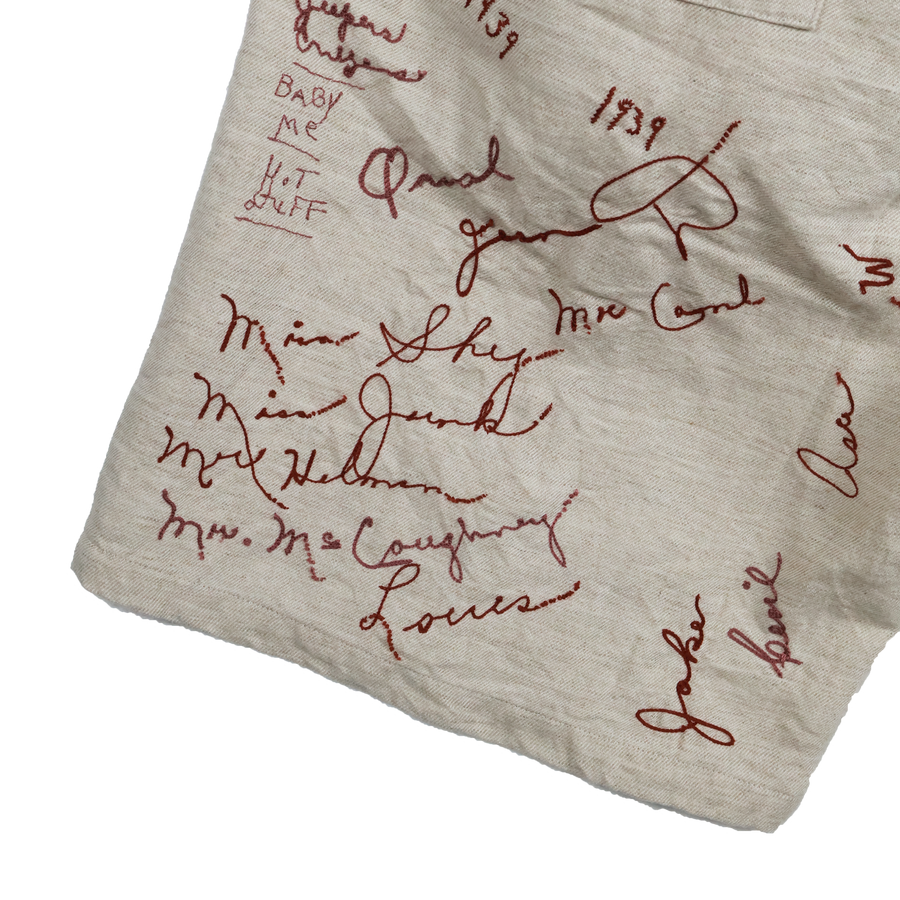 Jeepers
Creepers
1939
BABY
ME
HOT
STUFF
1939
Orval
Jean
Mr Card
W
Miss Shy
Miss Junk
Asa
Mrs Helman
Mrs. McCoughney
Loues
Jake